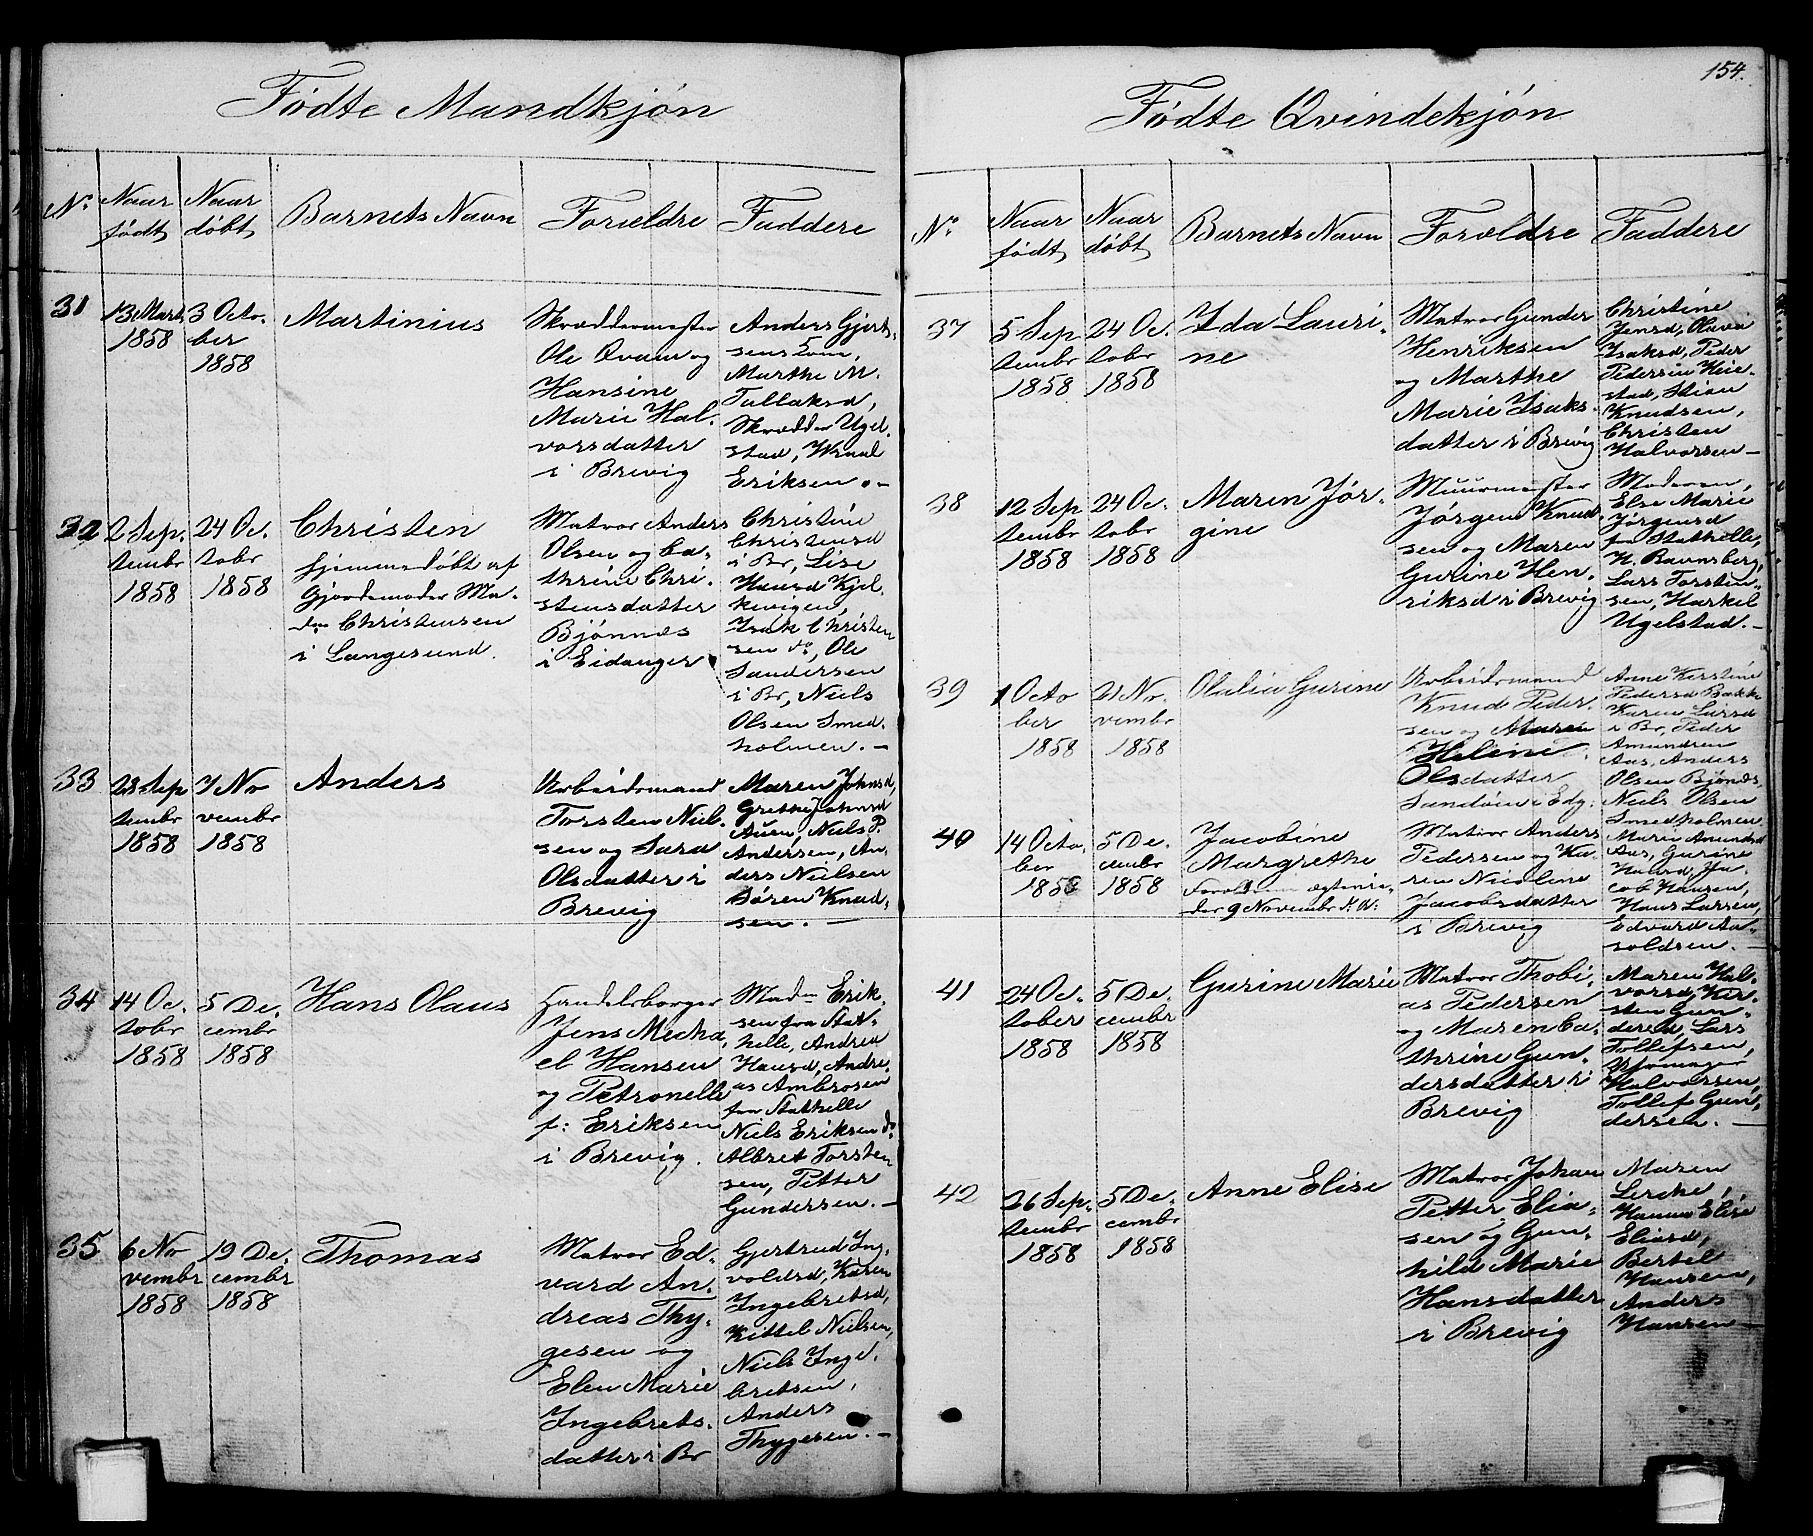 Fødte Mandkjøn
No
Naar
født
Naar
døbt
Barnets Navn
Forældre
Faddere
31
13 Marts
1858
3 Octo-
ber
1858
Martinius
Skræddermester
Ole Qvam og
Hansine
Marie Hal-
vorsdatter
i Brevig
Anders Gjert-
sens Kone,
Marthe M.
Tallaksd,
Skrædder Ugel-
stad, Wraal
Eriksen. –
32
2 Sep-
tembr
1858
24 Oc-
tobr
1858
Christen
hjemmedøbt af
Gjordemoder Ma-
dm Christensen
i Langesund.
Matros Anders
Olsen og Ca-
thrine Chri-
stensdatter
Bjønnes
i Eidanger
Christine
Christensd
i Br, Lise
Hansd Kjøl-
kevigen,
Isak Christen
sen do, Ole
Sandersen
i Br, Niels
Olsen Smed-
holmen. –
33
28 Sep
tembr
1858
7 No
vembr
1858
Anders
Arbeidsmand
Torsten Niel-
sen og Sara
Olsdatter i
Brevig
Maren Johnsd,
Grethe Johnsd
Auen, Niels P.
Andersen, An-
ders Nielsen
Søren Knud-
sen. –
34
14 Oc-
tobr
1858
5 De-
cembr
1858
Hans Olaus
Handelsborger
Jens Micha
el Hansen
og Petronelle
f: Eriksen
i Brevig.
Madm Erik-
sen fra Stat-
helle, Andrea
Hansd, Andre-
as Ambrosen
fra Stathelle
Niels Eriksen do
Albret Torsten
sen, Petter
Gundersen. –
35
6 No
vembr
1858
19 De-
cembr
1858
Thomas
Matros Ed-
vard An-
dreas Thy-
gesen og
Elen Marie
Ingebrets-
datter i Br
Gjertrud Ing-
voldsd, Karen
Ingebretsd,
Kittel Nielsen,
Niels Inge-
bretsen,
Anders
Thygesen. –
154.
Fødte Qvindekjøn
No
Naar
født
Naar
døbt
Barnets Navn
Forældre
Faddere
37
5 Sep
tembr
1858
24 Oc-
tobr
1858
Ida Lauri-
ne
Matros Gunder
Henriksen
og Marthe
Marie Isaks-
datter i Brevig
Christine
Jensd, Olava
Isaksd, Peder
Pedersen Heie-
stad, Stian
Knudsen,
Christen
Halvorsen –
38
12 Sep
tembr
1858
24 Oc-
tobr
1858
Maren Jør-
gine
Muurmester
Jørgen Knud-
sen og Maren
Gurine Hen-
riksd i Brevig
Moderen,
Else Marie
Jørgensd
fra Stathelle,
H. Ravnsberg,
Lars Torsten-
sen, Harkel
Ugelstad. –
39
1 Octo
ber
1858
21 No-
vembr
1858
Olalia Gurine
Arbeidsmand
Knud Peder-
sen og Maren
Helene
Olsdatter
Sandøen i Edg.
Anne Kirstine
Pedersd Bakke
Karen Larsd
i Br, Peder
Amundsen
Aas, Anders
Olsen Bjønes,
Niels Olsen
Smedholmen
40
14 Octo-
ber
1858
5 De-
cembr
1858
Jacobine
Margrethe
Forældrene ægtevie-
der 9 Novembr d. A.
Matros Anders
Pedersen og Ka-
ren Nicoline
Jacobsdatter
i Brevig
Maren Amundsd
Aas, Gurine
Halvd, Ja-
cob Hansen,
Hans Larsen,
Edvard Aa-
soldsen. –
41
24 Oc-
tober
1858
5 De-
cembr
1858
Gurine Marie
Matros Thobi-
as Pedersen
og Maren Ca-
thrine Gun-
dersdatter i
Brevig
Maren Hal-
vorsd, Kir-
sten Gun-
dersd, Lars
Tollefsen,
Halvorsen,
Tollef Gun-
dersen. –
42
26 Sep-
tembr
1858
5 De-
cembr
1858
Anne Elise
Matros Johan
Petter Elia-
sen og Gun-
hild Marie
Hansdatter
i Brevig
Maren
Lerche,
Hanna Elise
Eliasd,
Bertel
Hansen,
Anders
Hansen –